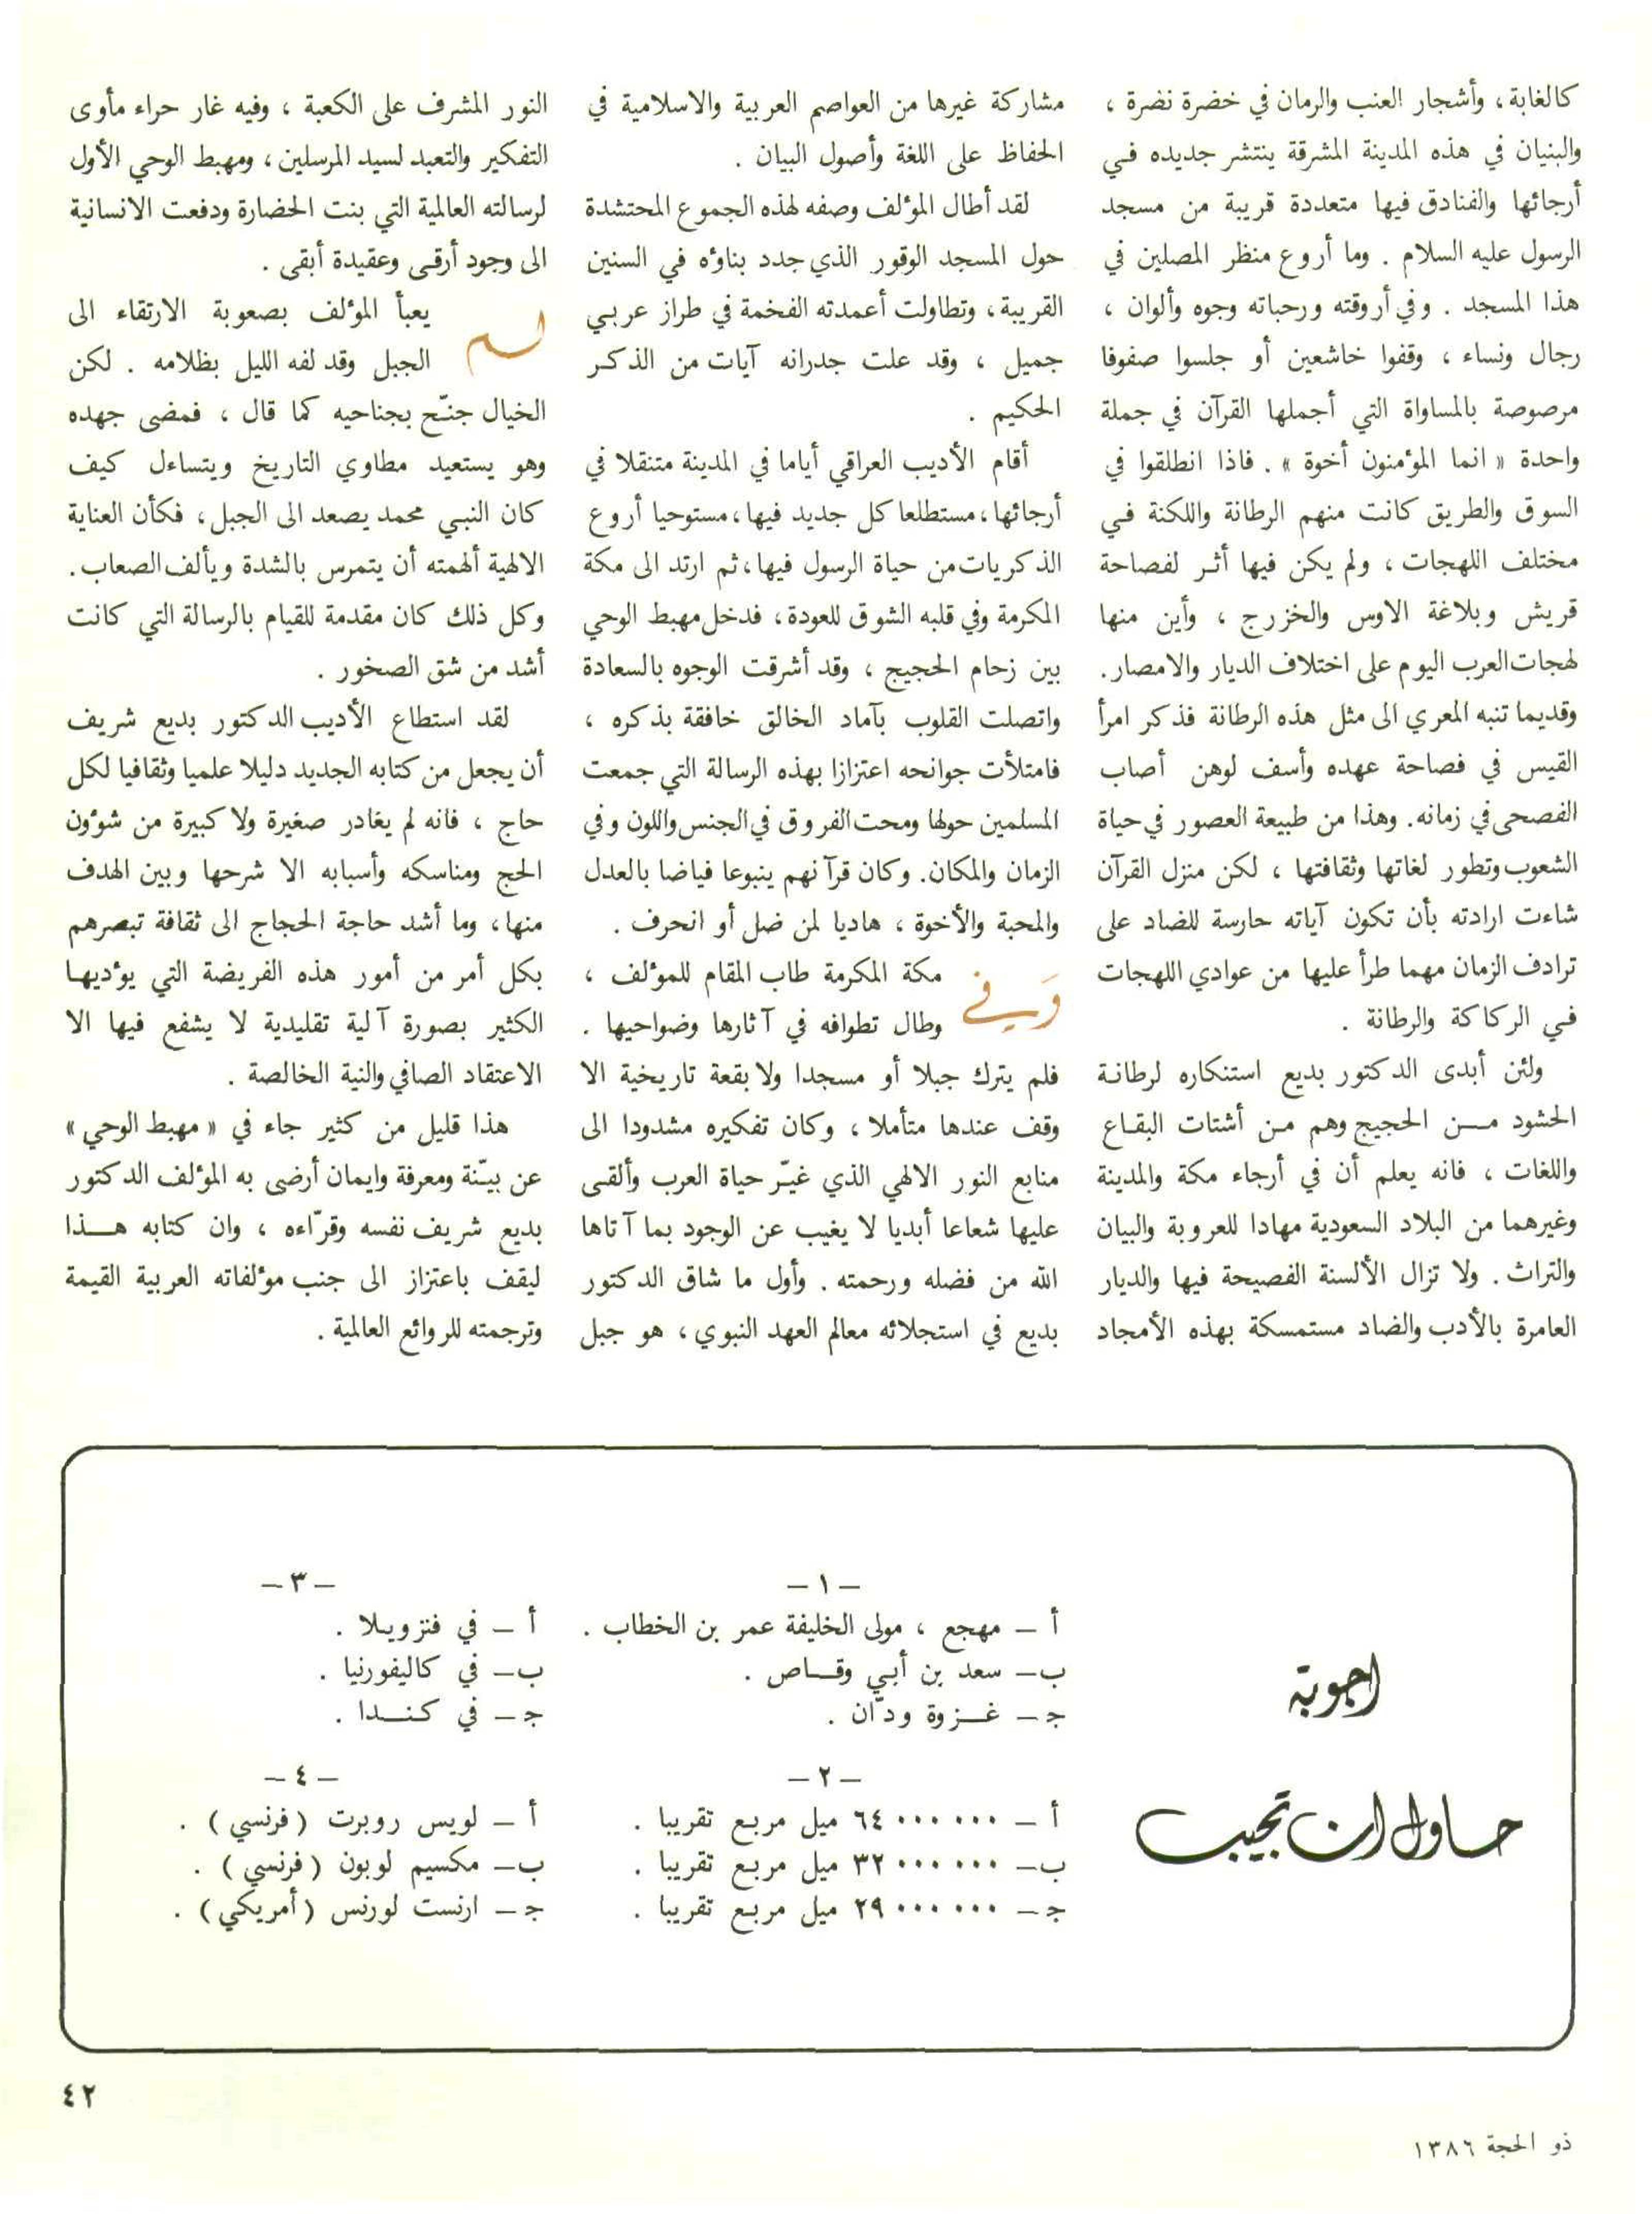 كالغابة، وأشجار العنب والرمان في خضرة نضرة ،
والبنيان في هذه المدينة المشرقة ينتشر جديده في
أرجائها والفنادق فيها متعددة قريبة من مسجد
الرسول عليه السلام . وما أروع منظر المصلين في
هذا المسجد . وفي أروقته ورحباته وجوه وألوان ،
رجال ونساء ، وقفوا خاشعين أو جلسوا صفوفا
مرصوصة بالمساواة التي أجملها القرآن في جملة
واحدة « انما المؤمنون أخوة » . فاذا انطلقوا في
السوق والطريق كانت منهم الرطانة واللكنة في
مختلف اللهجات ، ولم يكن فيها أثر لفصاحة
قريش وبلاغة الاوس والخزرج ، وأين منها
لهجات العرب اليوم على اختلاف الديار والامصار.
وقديما تنبه المعري الى مثل هذه الرطانة فذكر امرأ
القيس في فصاحة عهده وأسف لوهن أصاب
الفصحى في زمانه. وهذا من طبيعة العصور في حياة
الشعوب وتطور لغاتها وثقافتها ، لكن منزل القرآن
شاءت ارادته بأن تكون آياته حارسة للضاد على
ترادف الزمان مهما طرأ عليها من عوادي اللهجات
في الركاكة والرطانة .
ولئن أبدى الدكتور بديع استنكاره لرطانة
الحشود من الحجيج وهم من أشتات البقاع
واللغات ، فانه يعلم أن في أرجاء مكة والمدينة
وغيرهما من البلاد السعودية مهادا للعروبة والبيان
والتراث . ولا تزال الألسنة الفصيحة فيها والديار
العامرة بالأدب والضاد مستمسكة بهذه الأمجاد
مشاركة غيرها من العواصم العربية والاسلامية في
الحفاظ على اللغة وأصول البيان .
لقد أطال المؤلف وصفه لهذه الجموع المحتشدة
حول المسجد الوقور الذي جدد بناؤه في السنين
القريبة، وتطاولت أعمدته الفخمة في طراز عربي
جميل ، وقد علت جدرانه آيات من الذكر
الحكيم .
أقام الأديب العراقي أياما في المدينة متنقلا في
أرجائها، مستطلعا كل جديد فيها، مستوحيا أروع
الذكريات من حياة الرسول فيها، ثم ارتد الى مكة
المكرمة وفي قلبه الشوق للعودة، فدخل مهبط الوحي
بين زحام الحجيج ، وقد أشرقت الوجوه بالسعادة
واتصلت القلوب بآماد الخالق خافقة بذكره ،
فامتلأت جوانحه اعتزازا بهذه الرسالة التي جمعت
المسلمين حولها ومحت الفروق في الجنس واللون وفي
الزمان والمكان. وكان قرآنهم ينبوعا فياضا بالعدل
والمحبة والأخوة ، هاديا لمن ضل أو انحرف .
وَفي مكة المكرمة طاب المقام للمؤلف ،
وطال تطوافه في آثارها وضواحيها .
فلم يترك جبلا أو مسجدا ولا بقعة تاريخية الا
وقف عندها متأملا ، وكان تفكيره مشدودا الى
منابع النور الالهي الذي غيّر حياة العرب وألقى
عليها شعاعا أبديا لا يغيب عن الوجود بما آتاها
الله من فضله ورحمته . وأول ما شاق الدكتور
بديع في استجلائه معالم العهد النبوي، هو جبل
النور المشرف على الكعبة ، وفيه غار حراء مأوى
التفكير والتعبد لسيد المرسلين، ومهبط الوحي الأول
لرسالته العالمية التي بنت الحضارة ودفعت الانسانية
الى وجود أرقى وعقيدة أبقى .
لم يعبأ المؤلف بصعوبة الارتقاء الى
الجبل وقد لفه الليل بظلامه . لكن
الخيال جنّح بجناحيه كما قال ، فمضى جهده
وهو يستعيد مطاوي التاريخ ويتساءل كيف
كان النبي محمد يصعد الى الجبل، فكأن العناية
الالهية ألهمته أن يتمرس بالشدة ويألف الصعاب.
وكل ذلك كان مقدمة للقيام بالرسالة التي كانت
أشد من شق الصخور .
لقد استطاع الأديب الدكتور بديع شريف
أن يجعل من كتابه الجديد دليلا علميا وثقافيا لكل
حاج ، فانه لم يغادر صغيرة ولا كبيرة من شؤون
الحج ومناسكه وأسبابه الا شرحها وبين الهدف
منها، وما أشد حاجة الحجاج الى ثقافة تبصرهم
بكل أمر من أمور هذه الفريضة التي يؤديها
الكثير بصورة آلية تقليدية لا يشفع فيها الا
الاعتقاد الصافي والنية الخالصة .
هذا قليل من كثير جاء في « مهبط الوحي »
عن بيّنة ومعرفة وايمان أرضى به المؤلف الدكتور
بديع شريف نفسه وقرّاءه ، وان كتابه هذا
ليقف باعتزاز الى جنب مؤلفاته العربية القيمة
وترجمته للروائع العالمية .
اجوبة
حاول ان تجيب
– ١ –
أ – مهجع ، مولى الخليفة عمر بن الخطاب .
ب– سعد بن أبي وقاص .
ج – غزوة ودّان .
– ٢ –
أ – ٦٤٠٠٠٠٠٠ ميل مربع تقريبا .
ب– ٣٢٠٠٠٠٠٠ ميل مربع تقريبا .
ج – ٢٩٠٠٠٠٠٠ ميل مربع تقريبا .
– ٣ –
أ – في فنزويلا .
ب– في كاليفورنيا .
ج – في كندا .
– ٤ –
أ – لويس روبرت ( فرنسي ) .
ب– مكسيم لوبون ( فرنسي ) .
ج – ارنست لورنس ( أمريكي ) .
٤٢
ذو الحجة ١٣٨٦